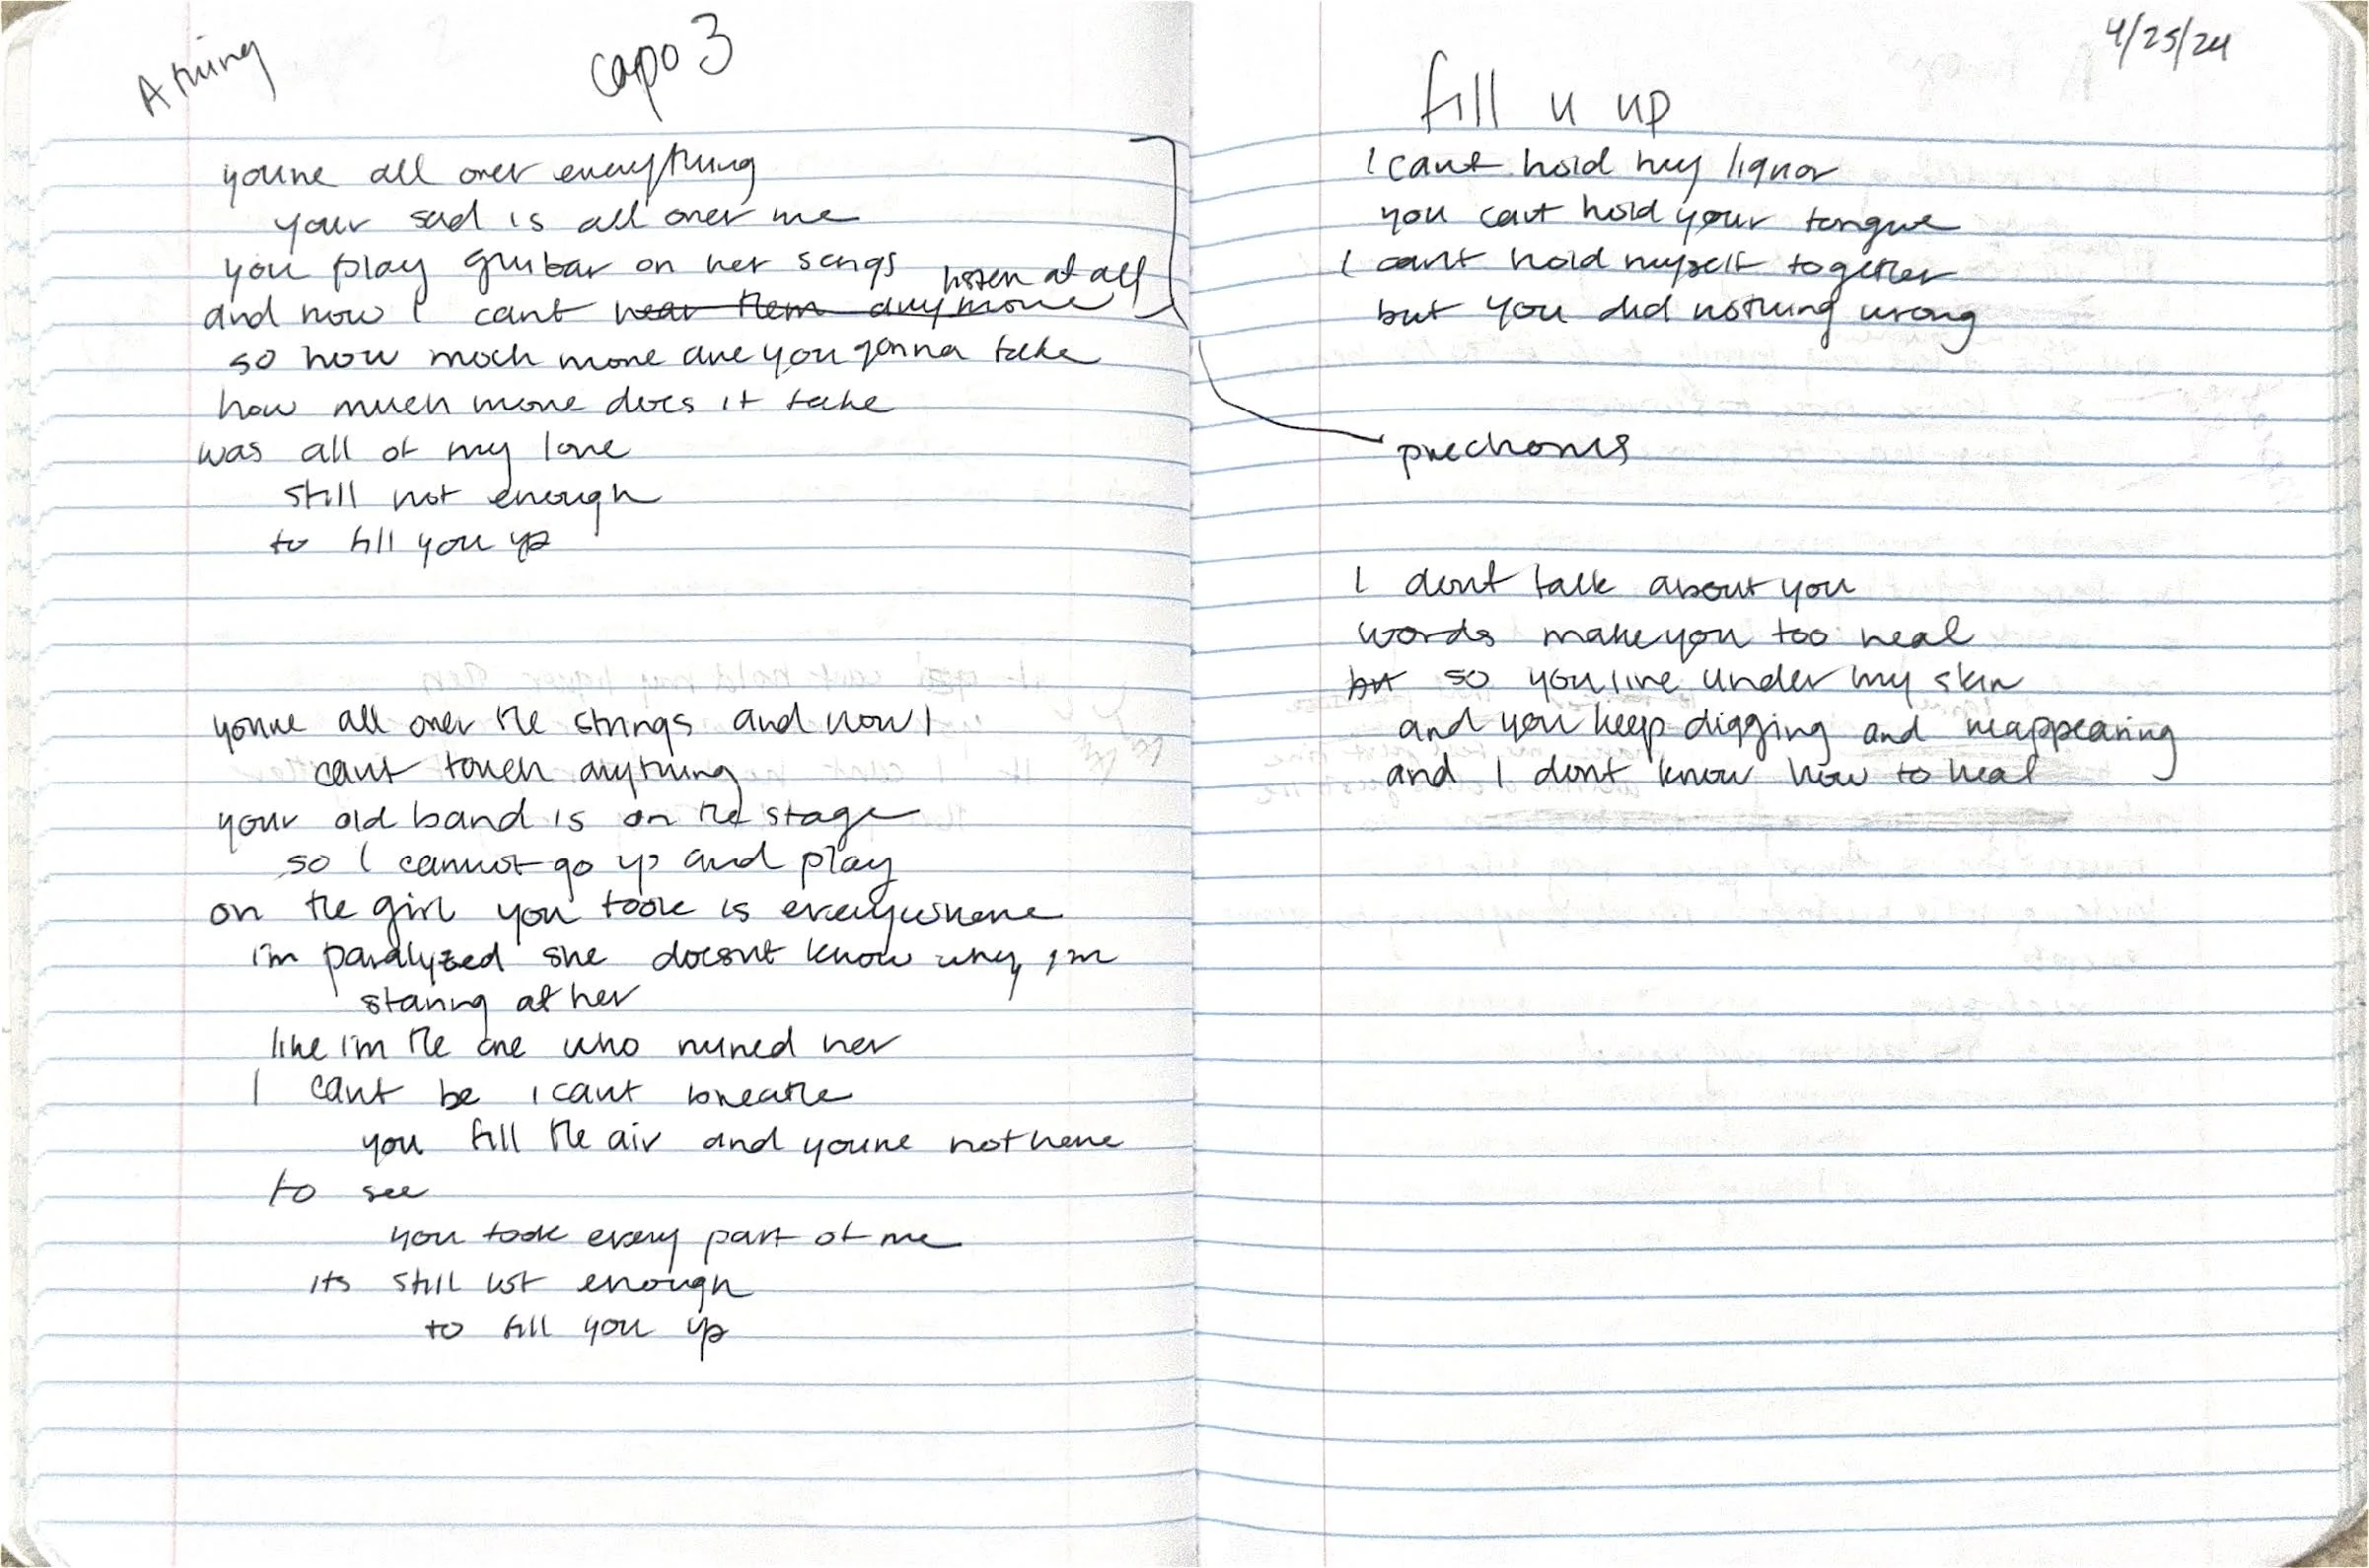 A tuning
capo 3
youre all over everything
your sad is all over me
you play guitar on her songs
listen at all
and now I cant hear them anymore
so how much more are you gonna take
how much more does it take
was all of my love
still not enough
to fill you up
youre all over the strings and now I
cant touch anything
your old band is on the stage
so I cannot go up and play
on the girl you took is everywhere
i'm paralyzed she doesnt know why, im
staring at her
like i'm the one who ruined her
I cant be i cant breathe
you fill the air and youre not here
to see
you took every part of me
its still not enough
to fill you up
4/25/24
fill u up
I cant hold my liquor
you cant hold your tongue
I cant hold myself together
but you did nothing wrong
prechorus
I dont talk about you
words make you too real
but so you live under my skin
and you keep digging and reappearing
and I dont know how to heal